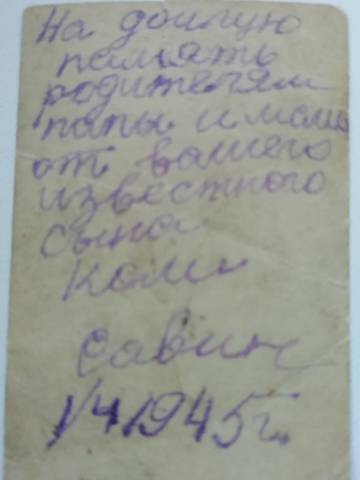 На долгую
память
родителям
папы и мамы
от вашего
известного
сына
Коли
Савин
1/4 1945 г.